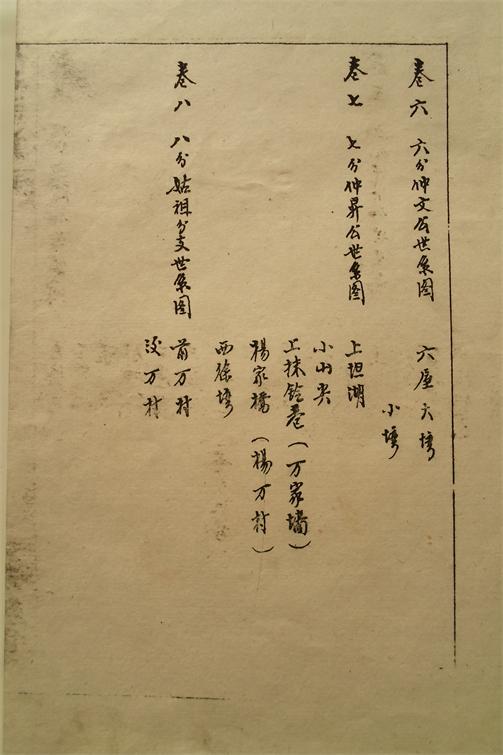 卷六 六分仲文公世系图 六屋大塆
小塆
卷七 七分仲昇公世系图 上坦湖
小山尖
上抹铃巷（万家墙）
楊家橋（楊万村）
西徐塆
卷八 八分姑祖分支世系图 前万村
后万村